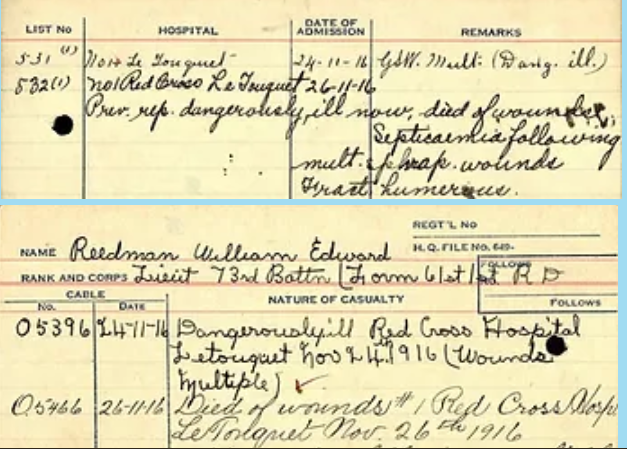 LIST No HOSPITAL DATE OF ADMISSION REMARKS
531 (1) No 1 Le Touquet 24-11-16 GSW. Mult: (Dang. ill.)
532 (1) No 1 Red Cross Le Touquet 26-11-16
Prev. rep. dangerously ill now, died of wounds
Septicaemia following
mult: shrap. wounds
Fract humerous.
REGT'L No
NAME Reedman William Edward H. Q. FILE No. 649-
RANK AND CORPS Lieut 73rd Battn (Form 61st FOLLOWS R D
CABLE NATURE OF CASUALTY FOLLOWS
No. DATE
05396 24-11-16 Dangerously ill Red Cross Hospital
Letouquet Nov 24th 1916 (Wounds
Multiple)
05466 26-11-16 Died of wounds #1 Red Cross Hosp
Le Touquet Nov. 26th 1916